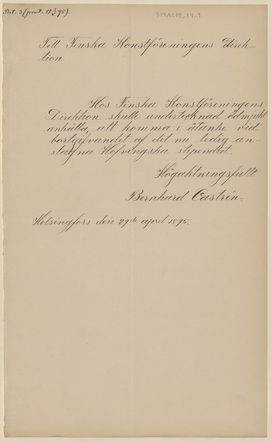 Till Finska Konstföreningens Direk-
tion
Hos Finska Konstföreningens
Direktion skulle undertecknad ödmjukt
anhålla, att komma i åtanke vid
bortgifvandet af det nu ledig an-
slagna Hofvingska stipendiet.
Högaktningsfullt
Bernhard Castrén.
Helsingfors den 29de april 1895.